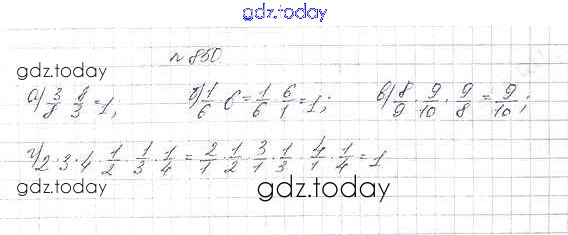 gdz.today
№ 850.
gdz.today
а) 3/8 · 8/3 = 1; б) 1/6 · 6 = 1/6 · 6/1 = 1; в) 8/9 · 9/10 · 9/8 = 9/10;
г) 2 · 3 · 4 · 1/2 · 1/3 · 1/4 = 2/1 · 1/2 · 3/1 · 1/3 · 4/1 · 1/4 = 1
gdz.today gdz.today